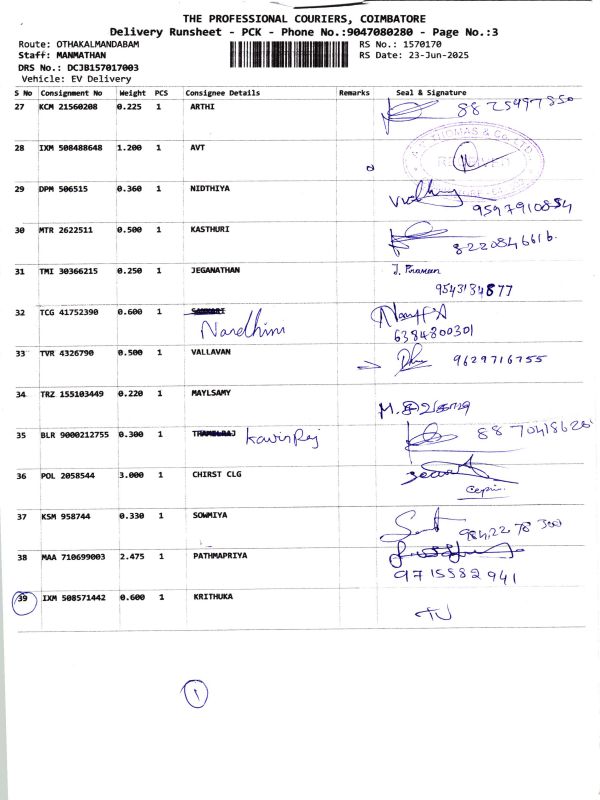 THE PROFESSIONAL COURIERS, COIMBATORE
Delivery Runsheet - PCK - Phone No.:9047080280 - Page No.:3
Route: OTHAKALMANDABAM RS No.: 1570170
Staff: MANMATHAN RS Date: 23-Jun-2025
DRS No.: DCJB157017003
Vehicle: EV Delivery
S No Consignment No Weight PCS Consignee Details Remarks Seal & Signature
27 KCM 21560208 0.225 1 ARTHI
28 IXM 508488648 1.200 1 AVT
29 DPM 506515 0.360 1 NIDTHIYA
9597910854
30 MTR 2622511 0.500 1 KASTHURI
8220846616.
31 TMI 30366215 0.250 1 JEGANATHAN J. Praveen
9543134877
32 TCG 41752390 0.600 1
Nandhini
6384800301
33 TVR 4326790 0.500 1 VALLAVAN 9629716755
34 TRZ 155103449 0.220 1 MAYLSAMY
35 BLR 9000212755 0.300 1 KavinRaj
36 POL 2058544 3.000 1 CHIRST CLG
37 KSM 958744 0.330 1 SOWMIYA
38 MAA 710699003 2.475 1 PATHMAPRIYA
9715582941
39 IXM 508571442 0.600 1 KRITHUKA
1